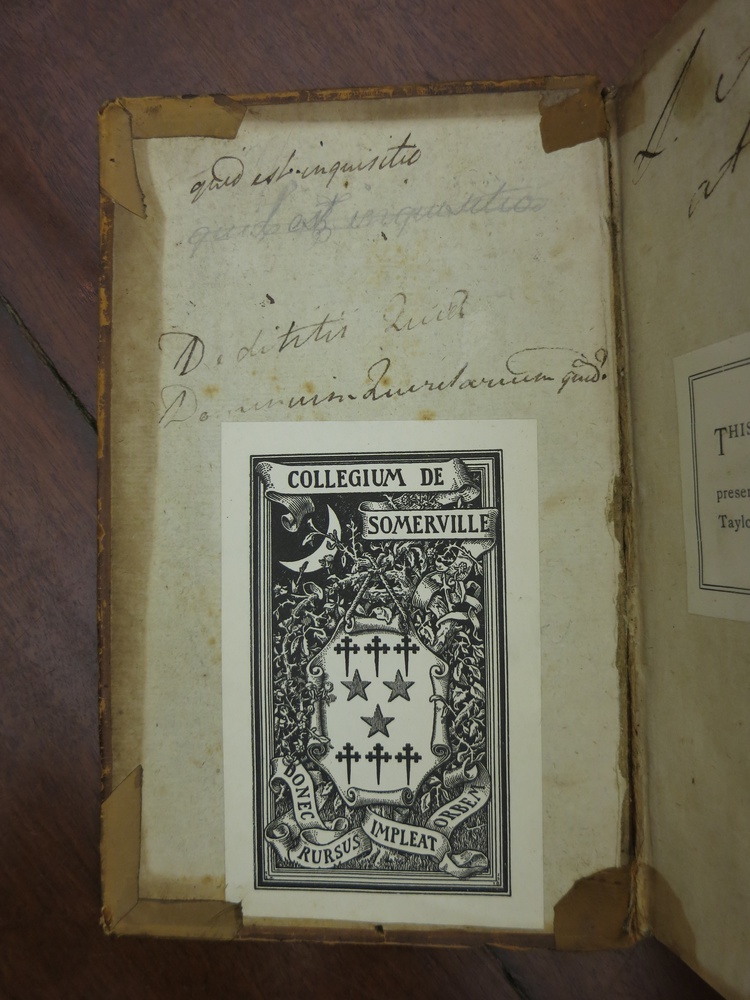 quid est inquisitio
quid est inquisitio
Deditits Quid
Dominium Quiretarium quid?
COLLEGIUM DE
SOMERVILLE
DONEC
RURSUS
IMPLEAT
ORBEM
THIS
presen
Taylo